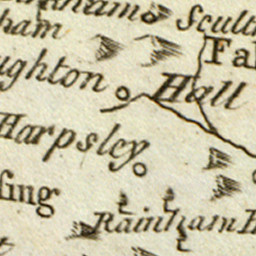 ham
Scult
Fa
ughton
Hall
Harpsley
sing
Rainham H